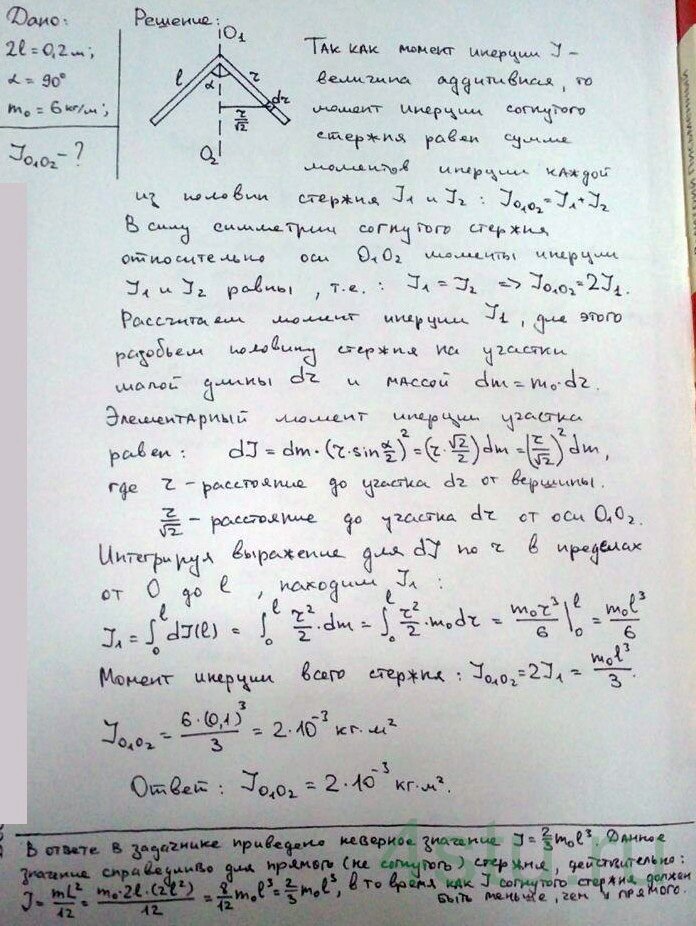 Дано:
2l = 0,2 м;
α = 90°
m₀ = 6 кг/м;
J_O₁O₂ - ?
Решение:
O₁
l α r dr
r/√2
O₂
Так как момент инерции J –
величина аддитивная, то
момент инерции согнутого
стержня равен сумме
моментов инерции каждой
из половин стержня J₁ и J₂ : J_O₁O₂ = J₁ + J₂
В силу симметрии согнутого стержня
относительно оси O₁O₂ моменты инерции
J₁ и J₂ равны, т.е. : J₁ = J₂ => J_O₁O₂ = 2J₁.
Рассчитаем момент инерции J₁, для этого
разобьем половину стержня на участки
малой длины dr и массой dm = m₀·dr.
Элементарный момент инерции участка
равен : dJ = dm·(r·sin α/2)² = (r·√2/2)dm = (r/√2)² dm,
где r – расстояние до участка dr от вершины.
r/√2 – расстояние до участка dr от оси O₁O₂.
Интегрируя выражение для dJ по r в пределах
от 0 до l, находим J₁ :
J₁ = ∫₀ˡ dJ(l) = ∫₀ˡ r²/2 · dm = ∫₀ˡ r²/2 · m₀dr = m₀r³/6 |₀ˡ = m₀l³/6
Момент инерции всего стержня : J_O₁O₂ = 2J₁ = m₀l³/3.
J_O₁O₂ = 6·(0,1)³/3 = 2·10⁻³ кг·м²
Ответ : J_O₁O₂ = 2·10⁻³ кг·м².
В ответе в задачнике приведено неверное значение J = 2/3 m₀l³. Данное
значение справедливо для прямого (не согнутого) стержня, действительно:
J = mL²/12 = m₀·2l·(2l²)/12 = 8/12 m₀l³ = 2/3 m₀l³, в то время как J согнутого стержня должен
быть меньше, чем у прямого.